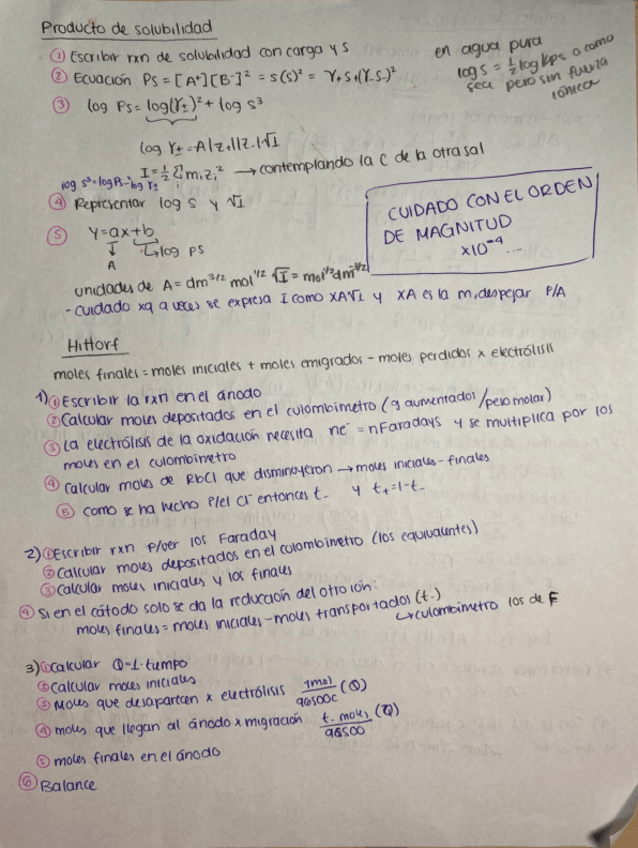 Producto de solubilidad
① Escribir rxn de solubilidad con carga y s
② Ecuación Ps = [A⁺][B⁻]² = s(s)² = γ+s+(γ-s-)²
en agua pura
log s = ½ log Kps o como
sea pero sin fuerza
iónica
③ log Ps = log(γ±)² + log s³
log γ± = -A|z+||z-|√I
I = ½ Σ mi zi² → contemplando la C de la otra sal
log s³ = log Ps - log γ±
④ Representar log s y √I
⑤ y = ax + b
A
log Ps
CUIDADO CON EL ORDEN
DE MAGNITUD
x10⁻⁴ ...
unidades de A = dm^3/2 mol^1/2 √I = mol^1/2 dm^-3/2
- cuidado xq a veces se expresa I como XA√I y XA es la m, despejar P/A
Hittorf
moles finales = moles iniciales + moles emigrados - moles perdidos x electrólisis
1) ① Escribir la rxn en el ánodo
② Calcular moles depositados en el culombímetro (g aumentados/peso molar)
③ La electrólisis de la oxidación necesita ne⁻ = nFaradays y se multiplica por los
moles en el culombímetro
④ Calcular moles de RbCl que disminuyeron → moles iniciales - finales
⑤ como se ha hecho P/el Cl⁻ entonces t- y t+ = 1 - t-
2) ① Escribir rxn p/ver los Faraday
② Calcular moles depositados en el culombímetro (los equivalentes)
③ Calcular moles iniciales y los finales
④ Si en el cátodo solo se da la reducción del otro ión:
moles finales = moles iniciales - moles transportados (t-)
↳ culombímetro los de F
3) ① Calcular Q = I · tiempo
② Calcular moles iniciales
③ Moles que desaparecen x electrólisis 1mol/96500C (Q)
④ moles que llegan al ánodo x migración t- moles/96500 (Q)
⑤ moles finales en el ánodo
⑥ Balance